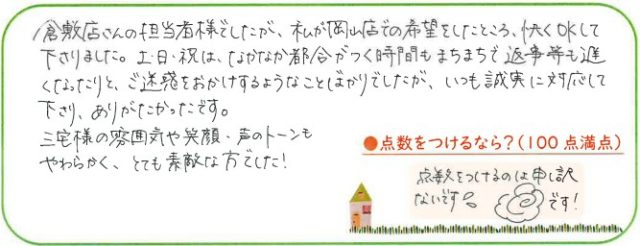 倉敷店さんの担当者様でしたが、私が岡山店での希望をしたところ、快くOKして
下さりました。土・日・祝は、なかなか都合がつく時間もまちまちで返事等も遅
くなったりと、ご迷惑をおかけするようなことばかりでしたが、いつも誠実に対応して
下さり、ありがたかったです。
三宅様の雰囲気や笑顔・声のトーンも
やわらかく、とても素敵な方でした!
●点数をつけるなら?(100点満点)
点数をつけるのは申し訳
ないです
です!